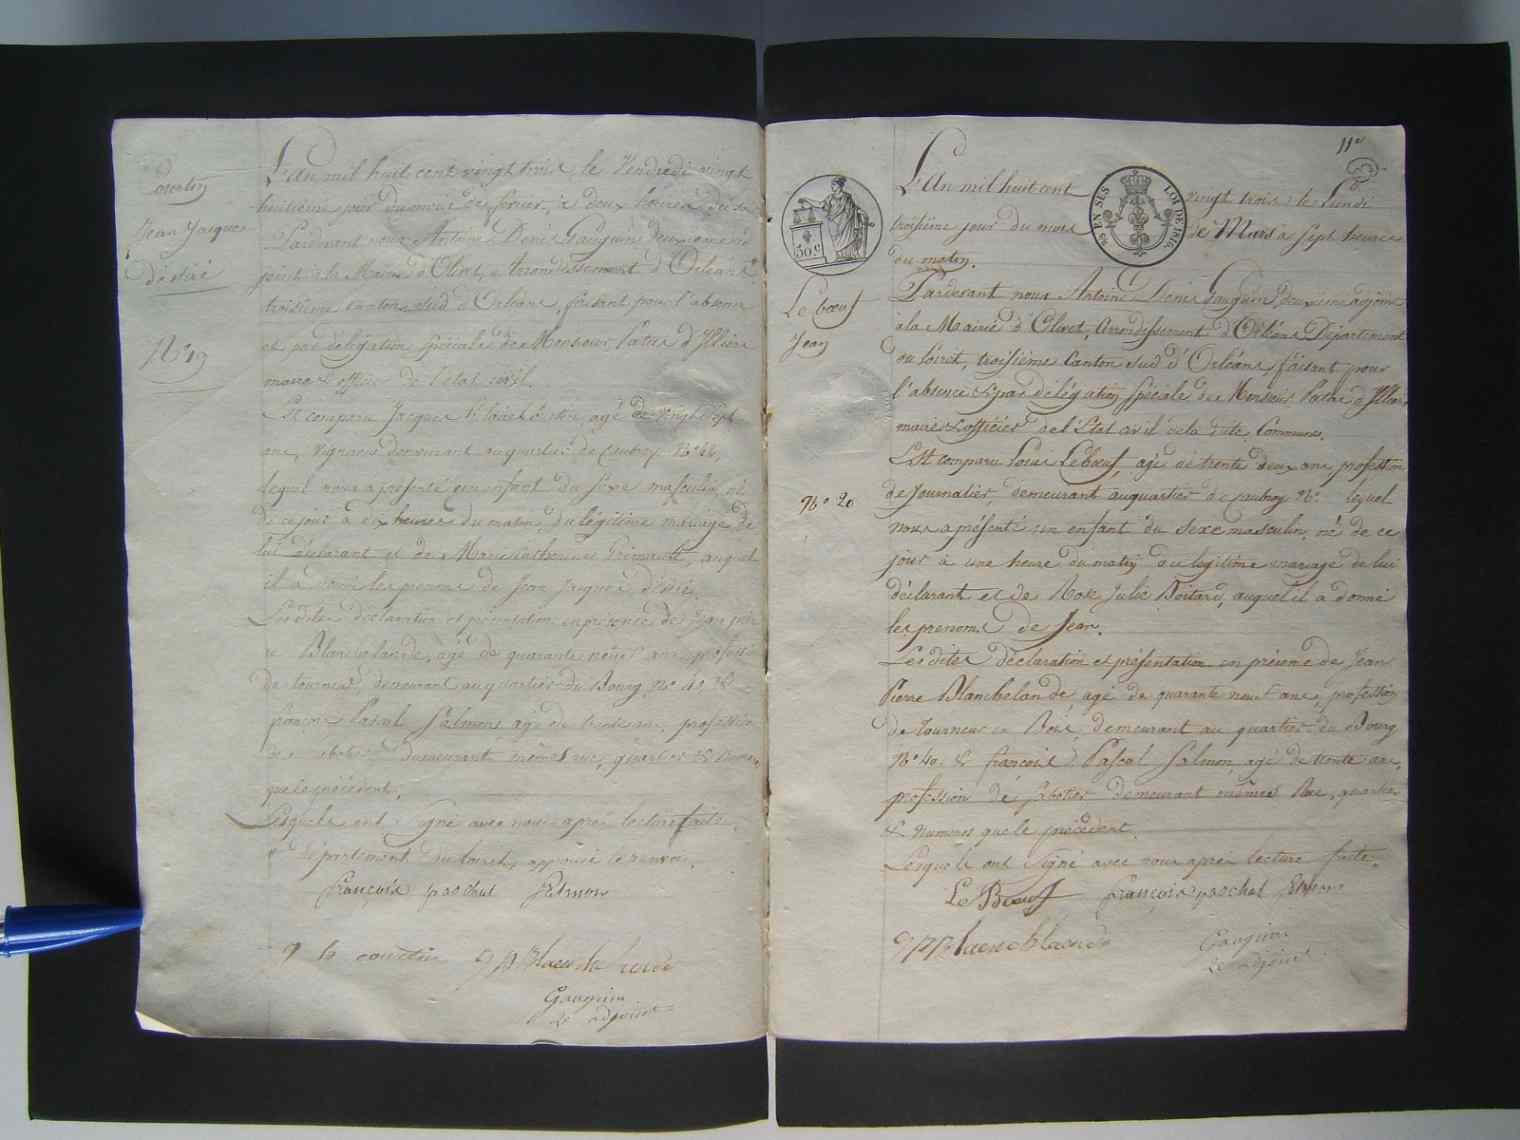 Courtin
Jean Jacques
Désiré
N° 19
L'An mil huit cent vingt trois le Vendredi vingt
huitième jour du mois de février, à deux heures du soir
Pardevant nous Antoine Denis Gauguin deuxième ad
joint à la Mairie d'Olivet, Arrondissement d'Orléans
troisième canton sud d'Orléans, faisant pour l'absence
et par délégation spéciale de Monsieur Patas d'Illiers
maire & officier de l'état civil.
Est comparu Jacques Courtin, agé de vingt sept
ans, vigneron demeurant au quartier de Caubray N° 42,
lequel nous a présenté un enfant du sexe masculin, né
de ce jour à dix heures du matin, du légitime mariage de
lui déclarant et de Marie Catherine, auquel
il a donné les prenoms de Jean Jacques Désiré.
Les dites déclaration et présentation en présence de Jean pier
re Blanchelande, agé de quarante neuf ans profession
de tourneur, demeurant au quartier du Bourg N° 40, &
françois Pascal Salmon agé de trente ans, profession
de sabotier demeurant même rue, quartier & Numero
que le précédent.
Lesquels ont signé avec nous après lecture faite.
département du Loiret, approuvé le renvoi.
françois paschal Salmon
courtin Blanchelande
Gauguin
adjoint
11e
L'An mil huit cent vingt trois le Lundi
troisième jour du mois de Mars à sept heures
du matin.
50 c
95 EN SUS
LOI DE 1816.
Le bœuf
Jean
N° 20
Pardevant nous Antoine Denis Gauguin, deuxième adjoint
à la Mairie d'Olivet, Arrondissement d'Orléans Département
du Loiret, troisième Canton sud d'Orléans, faisant pour
l'absence & par délégation spéciale de Monsieur Patas d'Illiers,
maire & officier de l'Etat civil de la dite Commune.
Est comparu Louis Lebœuf, agé de trente deux ans profession
de Journalier, demeurant au quartier de Caubray N° lequel
nous a présenté un enfant du sexe masculin, né de ce
jour à une heure du matin du legitime mariage de lui
déclarant et de Rose Julie Boitard, auquel il a donné
les prenoms de Jean.
Les dites déclaration et présentation en présence de Jean
Pierre Blanchelande, agé de quarante neuf ans, profession
de tourneur en Bois, demeurant au quartier du Bourg
N° 40. & françois Pascal Salmon, agé de trente ans,
profession de sabotier demeurant même Rue, quartier
& Numero que le précédent.
Lesquels ont signé avec nous après lecture faite.
Le Bœuf françois paschal Salmon
Blaencblaende
Gauguin
adjoint